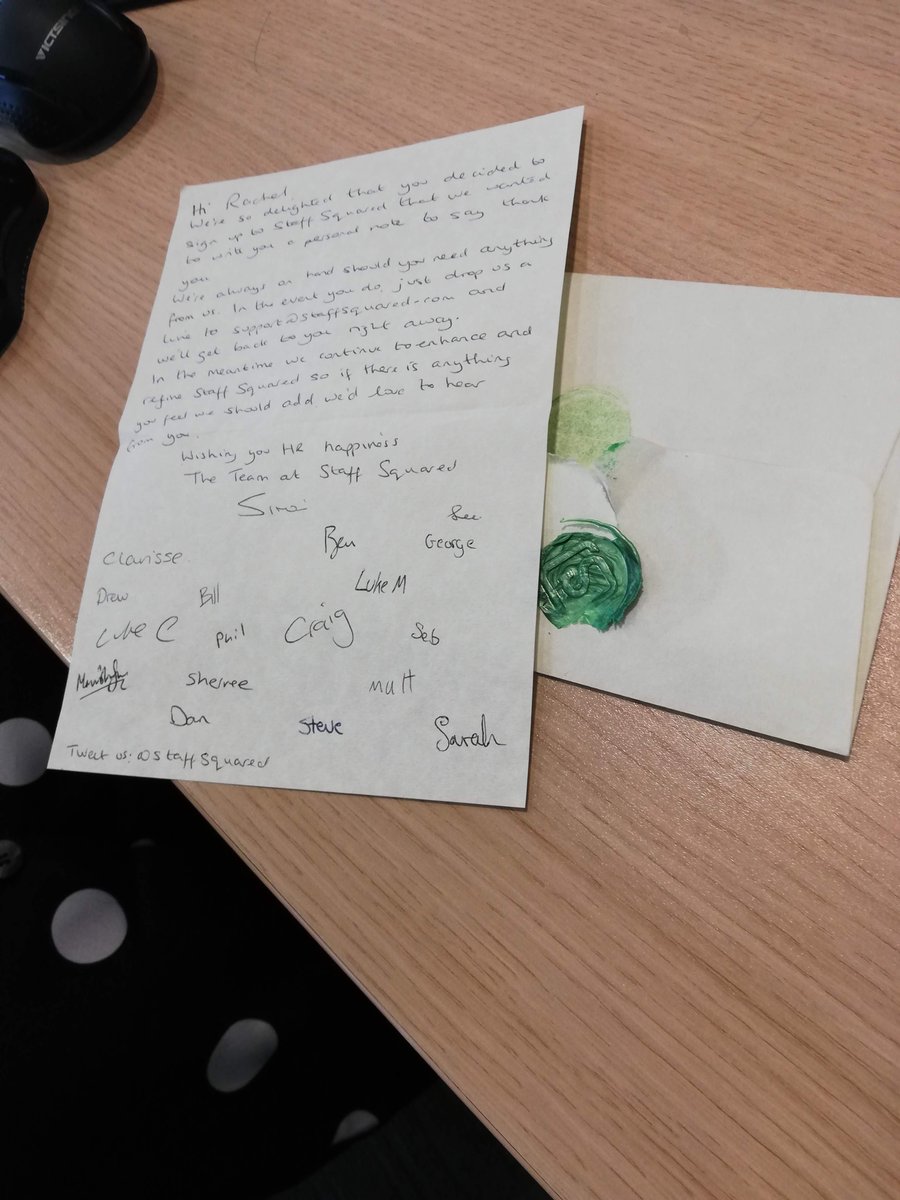 VICTSING
Hi Rachel
We're so delighted that you decided to
sign up to Staff Squared that we wanted
to write you a personal note to say thank
you
We're always on hand should you need anything
from us. In the event you do, just drop us a
line to support@staffsquared.com and
we'll get back to you right away.
In the meantime we continue to enhance and
refine Staff Squared so if there is anything
you feel we should add we'd love to hear
from you.
Wishing you HR happiness
The Team at Staff Squared
Ben George
Clarisse
Drew Bill Luke M
Luke C Phil Craig Seb
Sherree Matt
Dan Steve Sarah
Tweet us: @StaffSquared